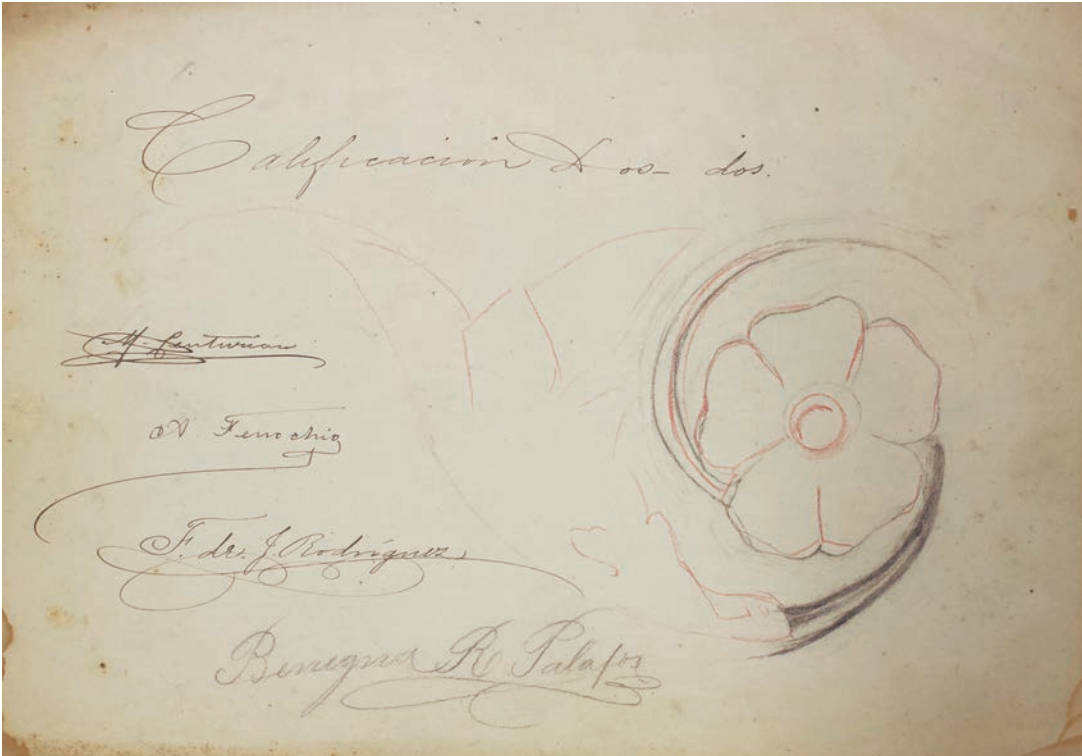 Calificacion Dos- dos.
M. Centurion
A. Fenochio
F. de J. Rodríguez
Benigna R Palafox